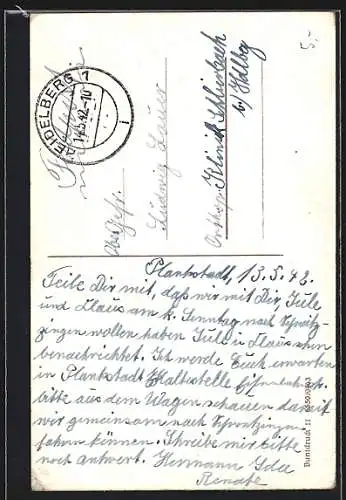 5,-
HEIDELBERG 1
14.5.42.-10
i
Feldpost
Abs. Gefr.
Ludwig Sauer
Orthop. Klinik Schlierbach
b/ Hdlbg
Plankstadt, 13.5.42.
Teile Dir mit, daß wir mit Dir, Jule
und Klaus am k. Sonntag nach Schwetz-
zingen wollen haben Jule u Klaus schon
benachrichtet. Ich werde Euch erwarten
in Plankstadt Haltestelle
bitte aus dem Wagen schauen damit
wir gemeinsam nach Schwetzingen
fahren können. Schreibe mir bitte
noch antwort. Hermann Ida
Renate